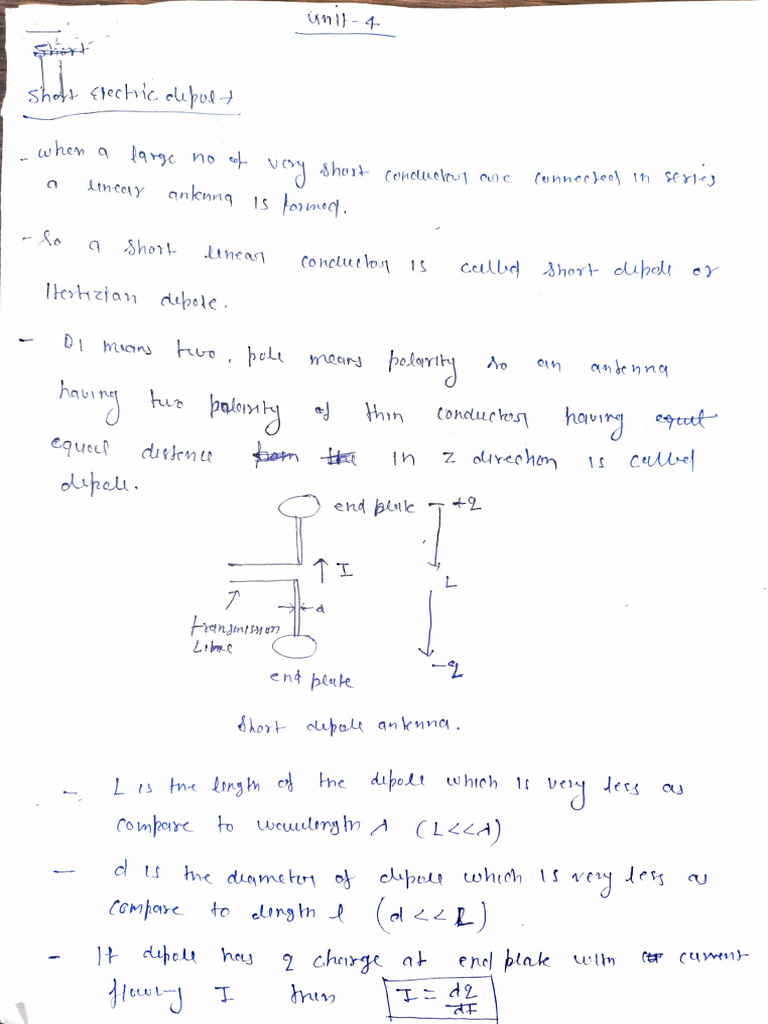 Unit - 4
Short
Short Electric depol →
- when a large no of very short conductors are connected in series
a linear antenna is formed.
- So a short linear conductor is called short dipole or
Hertizian depole.
- Di means two, pole means polarity so an antenna
having two polarity of thin conductor having equal
equal distence from the in z direction is called
depole.
end plate +q
I
L
d
transmission
Line
-q
end plate
Short depole antenna.
- L is the length of the depole which is very less as
compare to wavelength λ (L<<λ)
- d is the diameter of depole which is very less as
compare to length l (d << L)
- If depole has q charge at end plate with current
flowing I then I = dq/dt